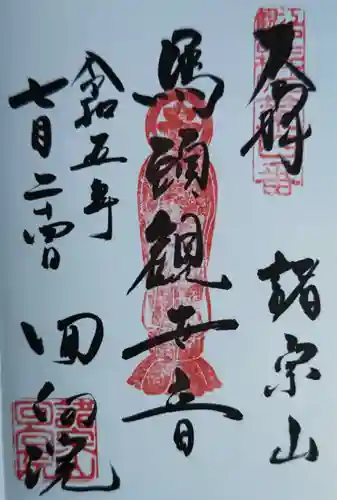 奉拝
諸宗山
馬頭観世音
令和五年
七月二十四日
回向院